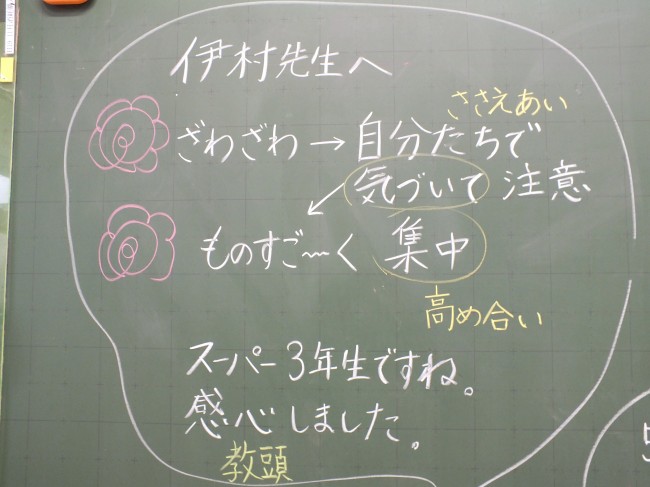 伊村先生へ
ささえあい
ざわざわ→自分たちで
気づいて 注意
ものすご〜く 集中
高め合い
スーパー3年生ですね。
感心しました。
教頭